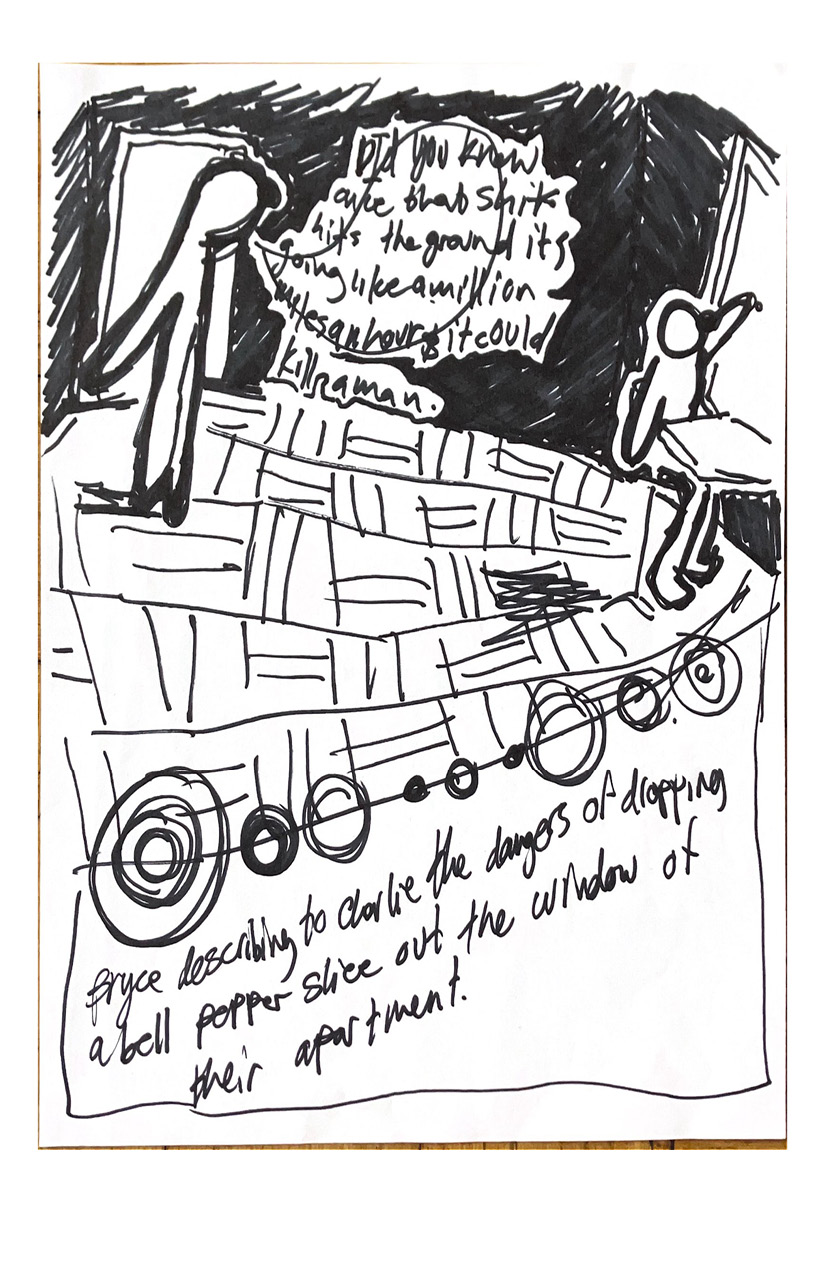 Did you know
once that shit
hits the ground its
going like a million
miles an hour & it could
kill a man.
Bryce describing to Charlie the dangers of dropping
a bell pepper slice out the window of
their apartment.